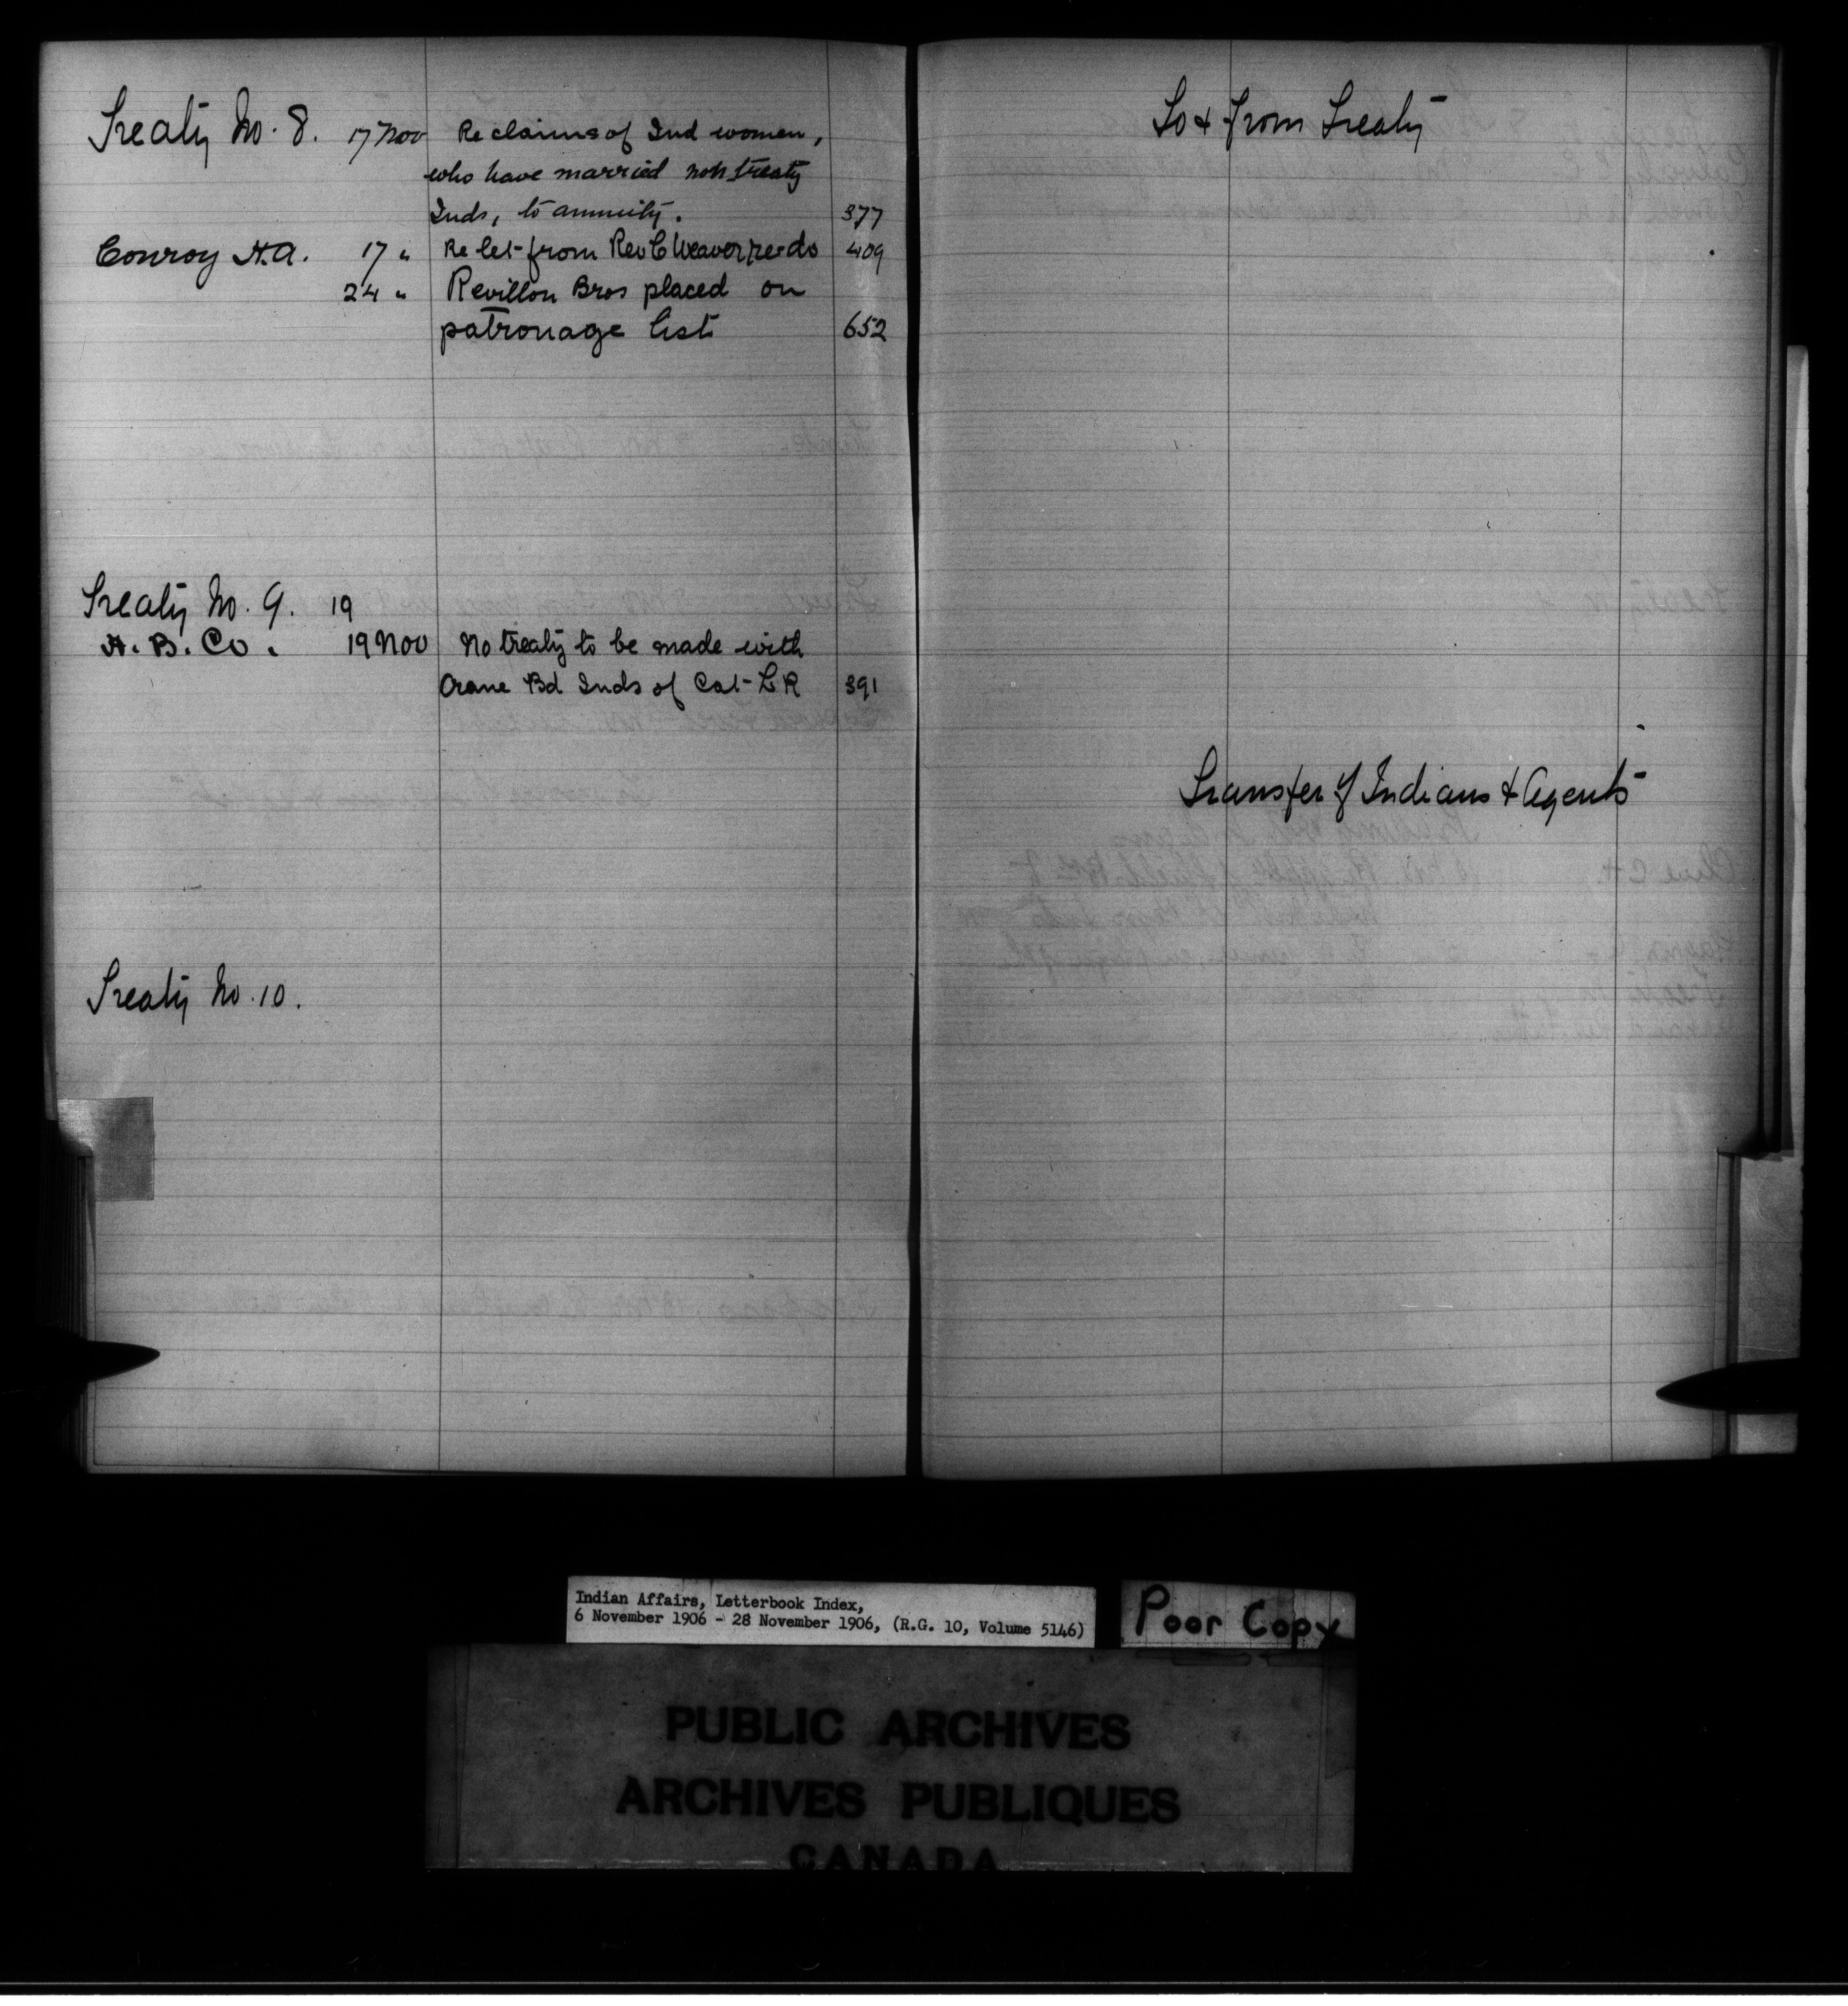 Treaty No. 8. 17 Nov Re claims of Ind women,
who have married non treaty
Inds, to annuity. 377
Conroy H.A. 17 " Re let from Rev C Weaver re do 409
24 " Revillon Bros placed on
patronage list 652
Treaty No. 9. 19
H. B. Co. 19 Nov No treaty to be made with
Crane Bd Inds of Cat L R 391
Treaty No. 10.
To & from Treaty
Transfer of Indians & Agents
Indian Affairs, Letterbook Index,
6 November 1906 - 28 November 1906, (R.G. 10, Volume 5146)
Poor Copy
PUBLIC ARCHIVES
ARCHIVES PUBLIQUES
CANADA